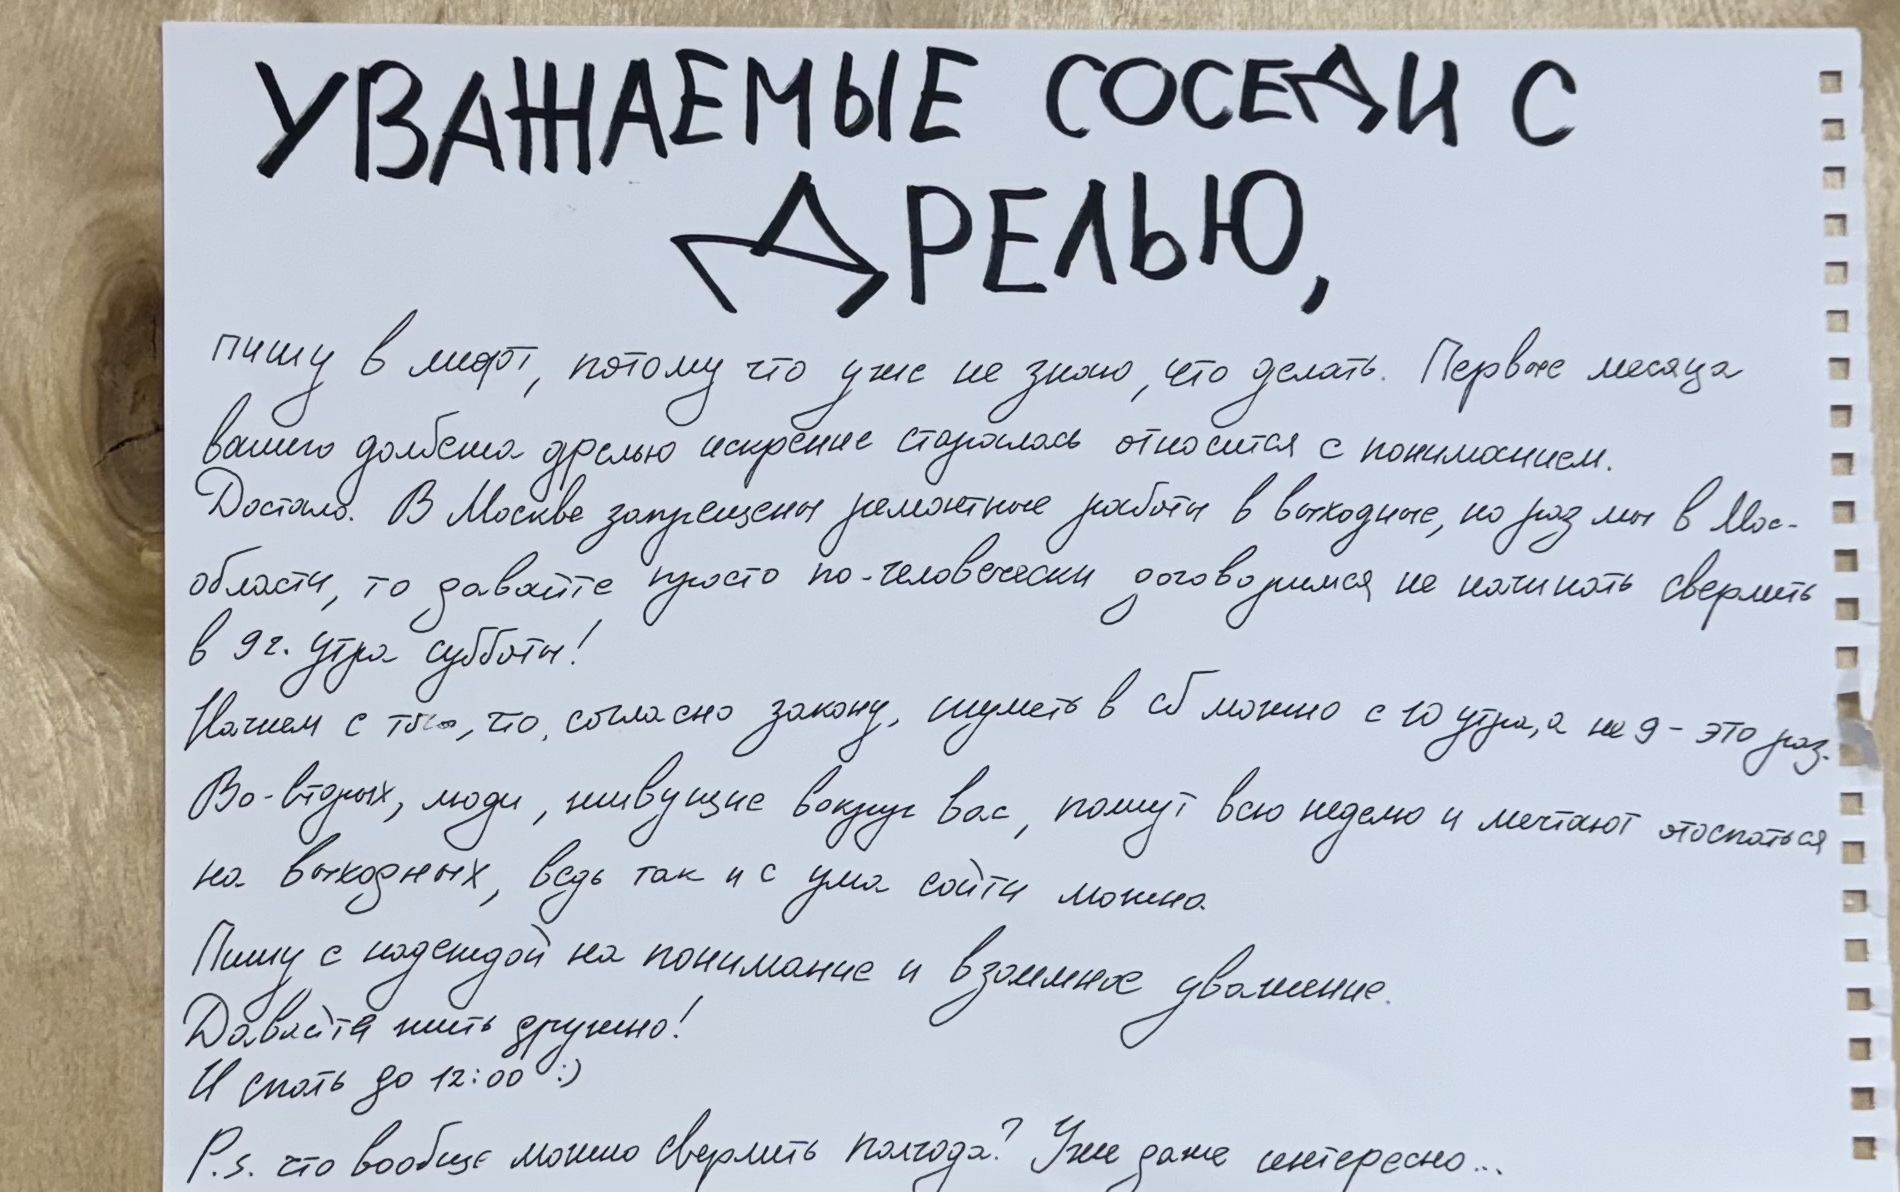 УВАЖАЕМЫЕ СОСЕДИ С
ДРЕЛЬЮ,
пишу в лифт, потому что уже не знаю, что делать. Первые месяца
вашего долбежа дрелью искренне старалась относится с пониманием.
Достало. В Москве запрещены ремонтные работы в выходные, но раз мы в Мос-
области, то давайте просто по-человечески договоримся не начинать сверлить
в 9 ч. утра субботы!
Начнем с того, что, согласно закону, шуметь в сб можно с 10 утра, а не 9 - это раз.
Во-вторых, люди, живущие вокруг вас, пашут всю неделю и мечтают отоспаться
на выходных, ведь так и с ума сойти можно.
Пишу с надеждой на понимание и взаимное уважение.
Давайте жить дружно!
И спать до 12:00 :)
P.s. что вообще можно сверлить полгода? Уже даже интересно...